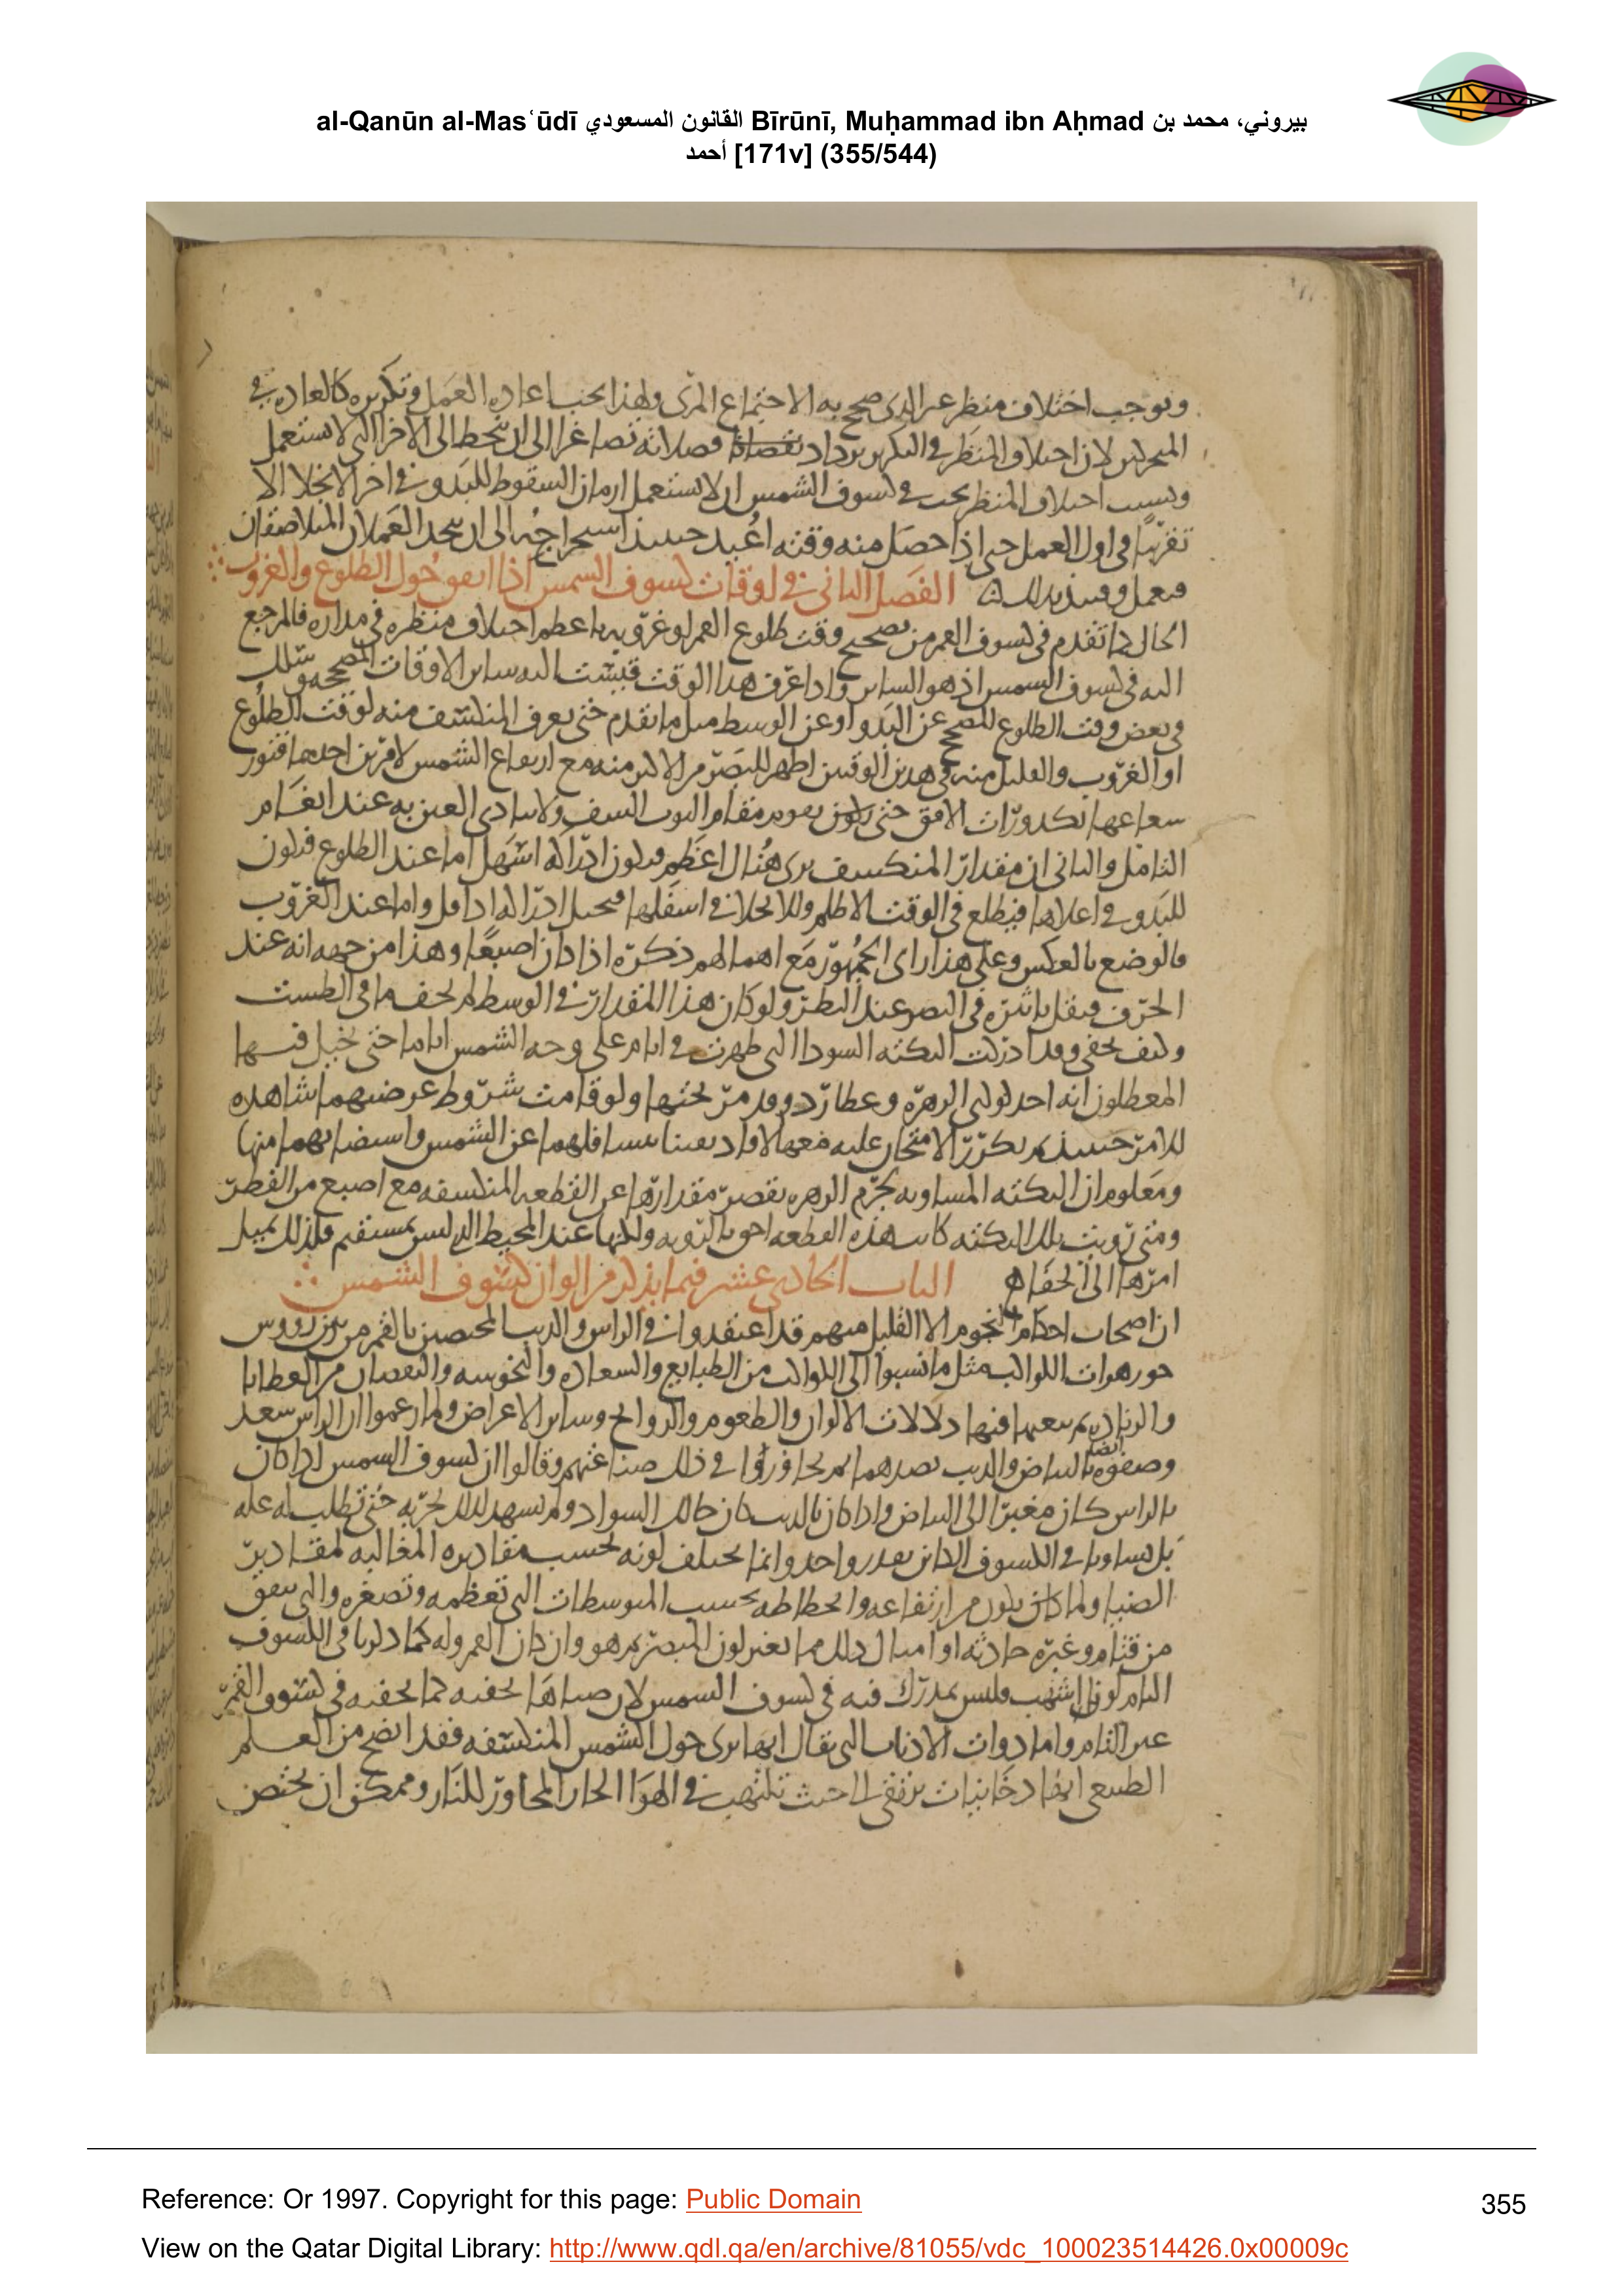 al-Qanūn al-Masʿūdī القانون المسعودي Bīrūnī, Muḥammad ibn Aḥmad بيروني، محمد بن
أحمد [171v] (355/544)
وتوجب اختلاف منظر عىر الدى صحح به الاجتماع المرى ولهذا يجب اعاده العمل وتكريره كالعاده في
لان اختلاف المنظر في التكرير يزداد فضلاته تصاغرا الى ان ينحط الى الاجزا التي لا تستعمل
وبسبب اختلاف المنظر يجب في كسوف الشمس ان لا تستعمل ازمان السقوط للبدو في اخر الانجلا الا
تقريبا في اول العمل حتى اذا حصل منه وقته اعيد حينئذ استخراجه الى ان يتحد العملان المتلاصقان
الفصل الثاني في اوقات كسوف الشمس اذا اتفق حول الطلوع والغروب
الحال كما تقدم في كسوف القمر من تصحيح وقت طلوع القمر او غروبه باعظم اختلاف منظره في مداره فالمرجع
اليه في كسوف الشمس اذ هو الساتر واذا عرف هذا الوقت قيست اليه ساير الاوقات المصححه
وقت الطلوع المصحح عن البدو او عن الوسط مثل ما تقدم حتى يعرف المنكسف منه لوقت الطلوع
او الغروب والقليل منه في هذين الوقتين اظهر للبصر من الاكثر منه مع ارتفاع الشمس لامرين احدهما فتور
شعاعها بكدورات الافق حتى يكون مقام الثوب ولا تتاذى العين به عند انعام
التامل والثاني ان مقدار المنكسف يرى هناك اعظم فيكون ادراكه اسهل اما عند الطلوع فيكون
للبدو في اعلاها فيطلع في الوقت الاظلم وللانجلا في اسفلها ادراكه واما عند الغروب
فالوضع بالعكس وعلى هذا راى الجمهور مع اهمالهم ذكره اذا كان اصبعا وهذا من جهه انه عند
الحرف فيقل تاثيره في البصر عند النظر ولو كان هذا المقدار في الوسط لم يخف في الطست
وكيف يخفى وقد ادركت النكته السودا التي ظهرت في ايام على وجه الشمس اياما حتى تخيل فيها
انه احد كوكبي الزهره وعطارد وقد مر تحتها ولو قامت شروط عرضيهما شاهده
للامر حينئذ لم يكرر الامتحان عليه
ومعلوم ان النكته المساويه لجرم الزهره يقصر مقدارها عن القطعه المنكسفه مع اصبع من القطر
ومتى رويت تلك النكته كانت هذه القطعه احق بالرويه ولكنها عند المحيط الذي ليس بمستقيم فلذلك يميل
امرها الى الخفا ه
الباب الحادي عشر فيما يذكر من الوان كسوف الشمس
ان اصحاب احكام النجوم الا القليل منهم قد اعتقدوا في الراس والذنب المختصين بالقمر من بين رووس
جوزهرات الكواكب مثل ما نسبوا الى الكواكب من الطبايع والسعاده والنحوسه والنقصان من العطايا
والزياده فيها دلالات الالوان والطعوم والروايح وساير الاعراض ولما زعموا ان الراس سعد
وصفوه ايضا بالبياض والذنب بضدهما في ذلك صناعتهم وقالوا ان كسوف الشمس اذا كان
بالراس كان مغبرا الى البياض واذا كان بالذنب كان حالك السواد ولم تشهد لذلك تجربه حتى تطلب له عله
بل في الكسوف الكاين بقدر واحد وانما يختلف لونه بحسب مقاديره المغالبه لمقادير
الضيا ولما كان يكون من ارتفاعه وانحطاطه بحسب المتوسطات التي تعظمه وتصغره والتي تتفق
من قتام وغبره حادثه او امثال ذلك مما يغير لون المبصر وان كان القمر وله كما ذكرنا في الكسوف
التام لونا اشهب وليس يدرك فيه في كسوف الشمس لان ضياها يخفيه كما يخفيه في كسوف القمر
غير التام واما ذوات الاذناب التي يقال انها ترى حول الشمس المنكسفه فقد اتضح من العلم
الطبيعي انها دخانيات ترتقي الى حيث تلتهب في الهوا الحار المجاور للنار وممكن ان يختص
Reference: Or 1997. Copyright for this page: Public Domain
355
View on the Qatar Digital Library: http://www.qdl.qa/en/archive/81055/vdc_100023514426.0x00009c